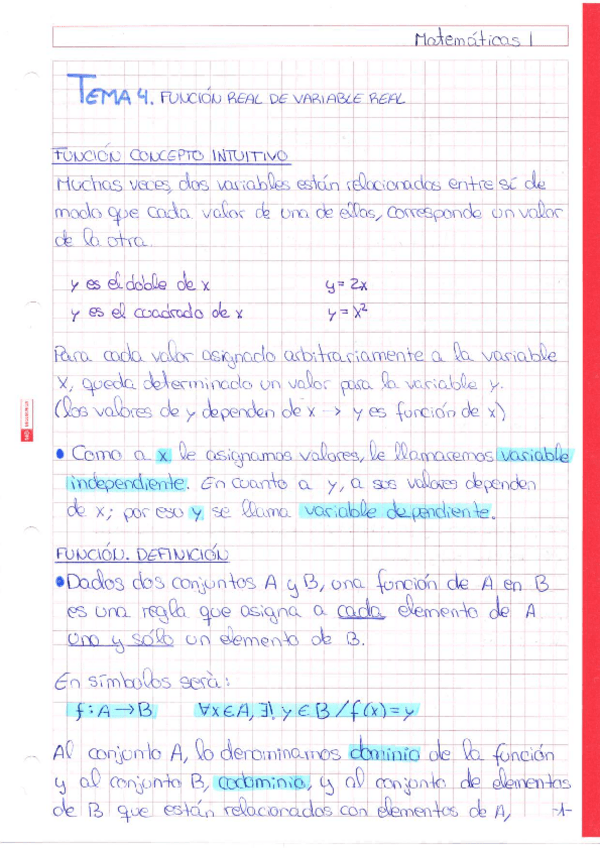 Matemáticas I
TEMA 4. FUNCIÓN REAL DE VARIABLE REAL
FUNCIÓN CONCEPTO INTUITIVO
Muchas veces, dos variables están relacionadas entre sí de
modo que cada valor de una de ellas, corresponde un valor
de la otra.
y es el doble de x y = 2x
y es el cuadrado de x y = x²
Para cada valor asignado arbitrariamente a la variable
x, queda determinado un valor para la variable y.
(los valores de y dependen de x → y es función de x)
• Como a x le asignamos valores, le llamaremos variable
independiente. En cuanto a y, a sus valores dependen
de x; por eso y se llama variable dependiente.
FUNCIÓN. DEFINICIÓN
• Dados dos conjuntos A y B, una función de A en B
es una regla que asigna a cada elemento de A
uno y sólo un elemento de B.
En símbolos serà:
f: A → B ∀x ∈ A, ∃! y ∈ B / f(x) = y
Al conjunto A, lo denominamos dominio de la función
y al conjunto B, codominio, y al conjunto de elementos
de B que están relacionados con elementos de A,
-1-